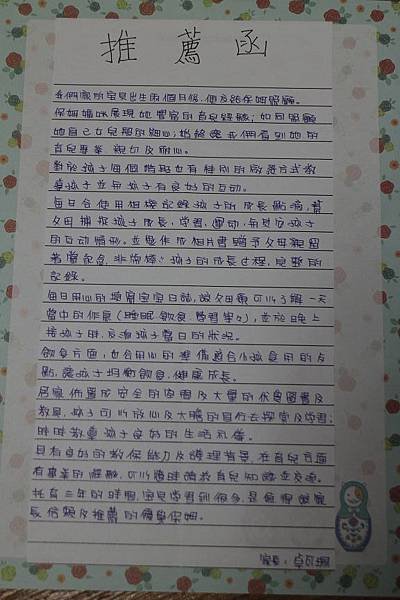 推薦函
我們家的宝貝出生兩個月後,便交給保姆照顧。
保姆媽咪展現她豐富的育兒經驗;如同照顧
她自己女兒般的細心;始終讓我們看到她的
育兒專業、親切及耐心。
對於孩子每個階段也有特別的啟蒙方式教
導孩子並與孩子有良好的互動。
每日會使用相機記錄孩子的成長點滴,替
父母捕捉孩子成長,學習,運動,與其它孩子
的互動情形。並製作成相片書贈予父母親留
為紀念,非常棒!孩子的成長过程,完整的
記錄。
每日用心的填寫宝宝日誌,讓父母親可以了解一天
當中的作息(睡眠、飲食、學習等),並於晚上
接孩子時,反应孩子當日的狀況。
飲食方面,也会用心的準備適合小孩食用的点
點,讓孩子均衡飲食,健康成長。
居家佈置成安全的空間及大量的优良圖書及
教具,孩子可以放心及大膽的自行去探索及学習;
時時教導孩子良好的生活礼儀。
具有良好的教保能力及護理背景,在育兒方面
有專業的經驗,可以隨時請教育兒知識並交流。
托育三年的時間,宝貝学習到很多,是值得讓家
長信賴及推薦的優良保姆。
家長:卓